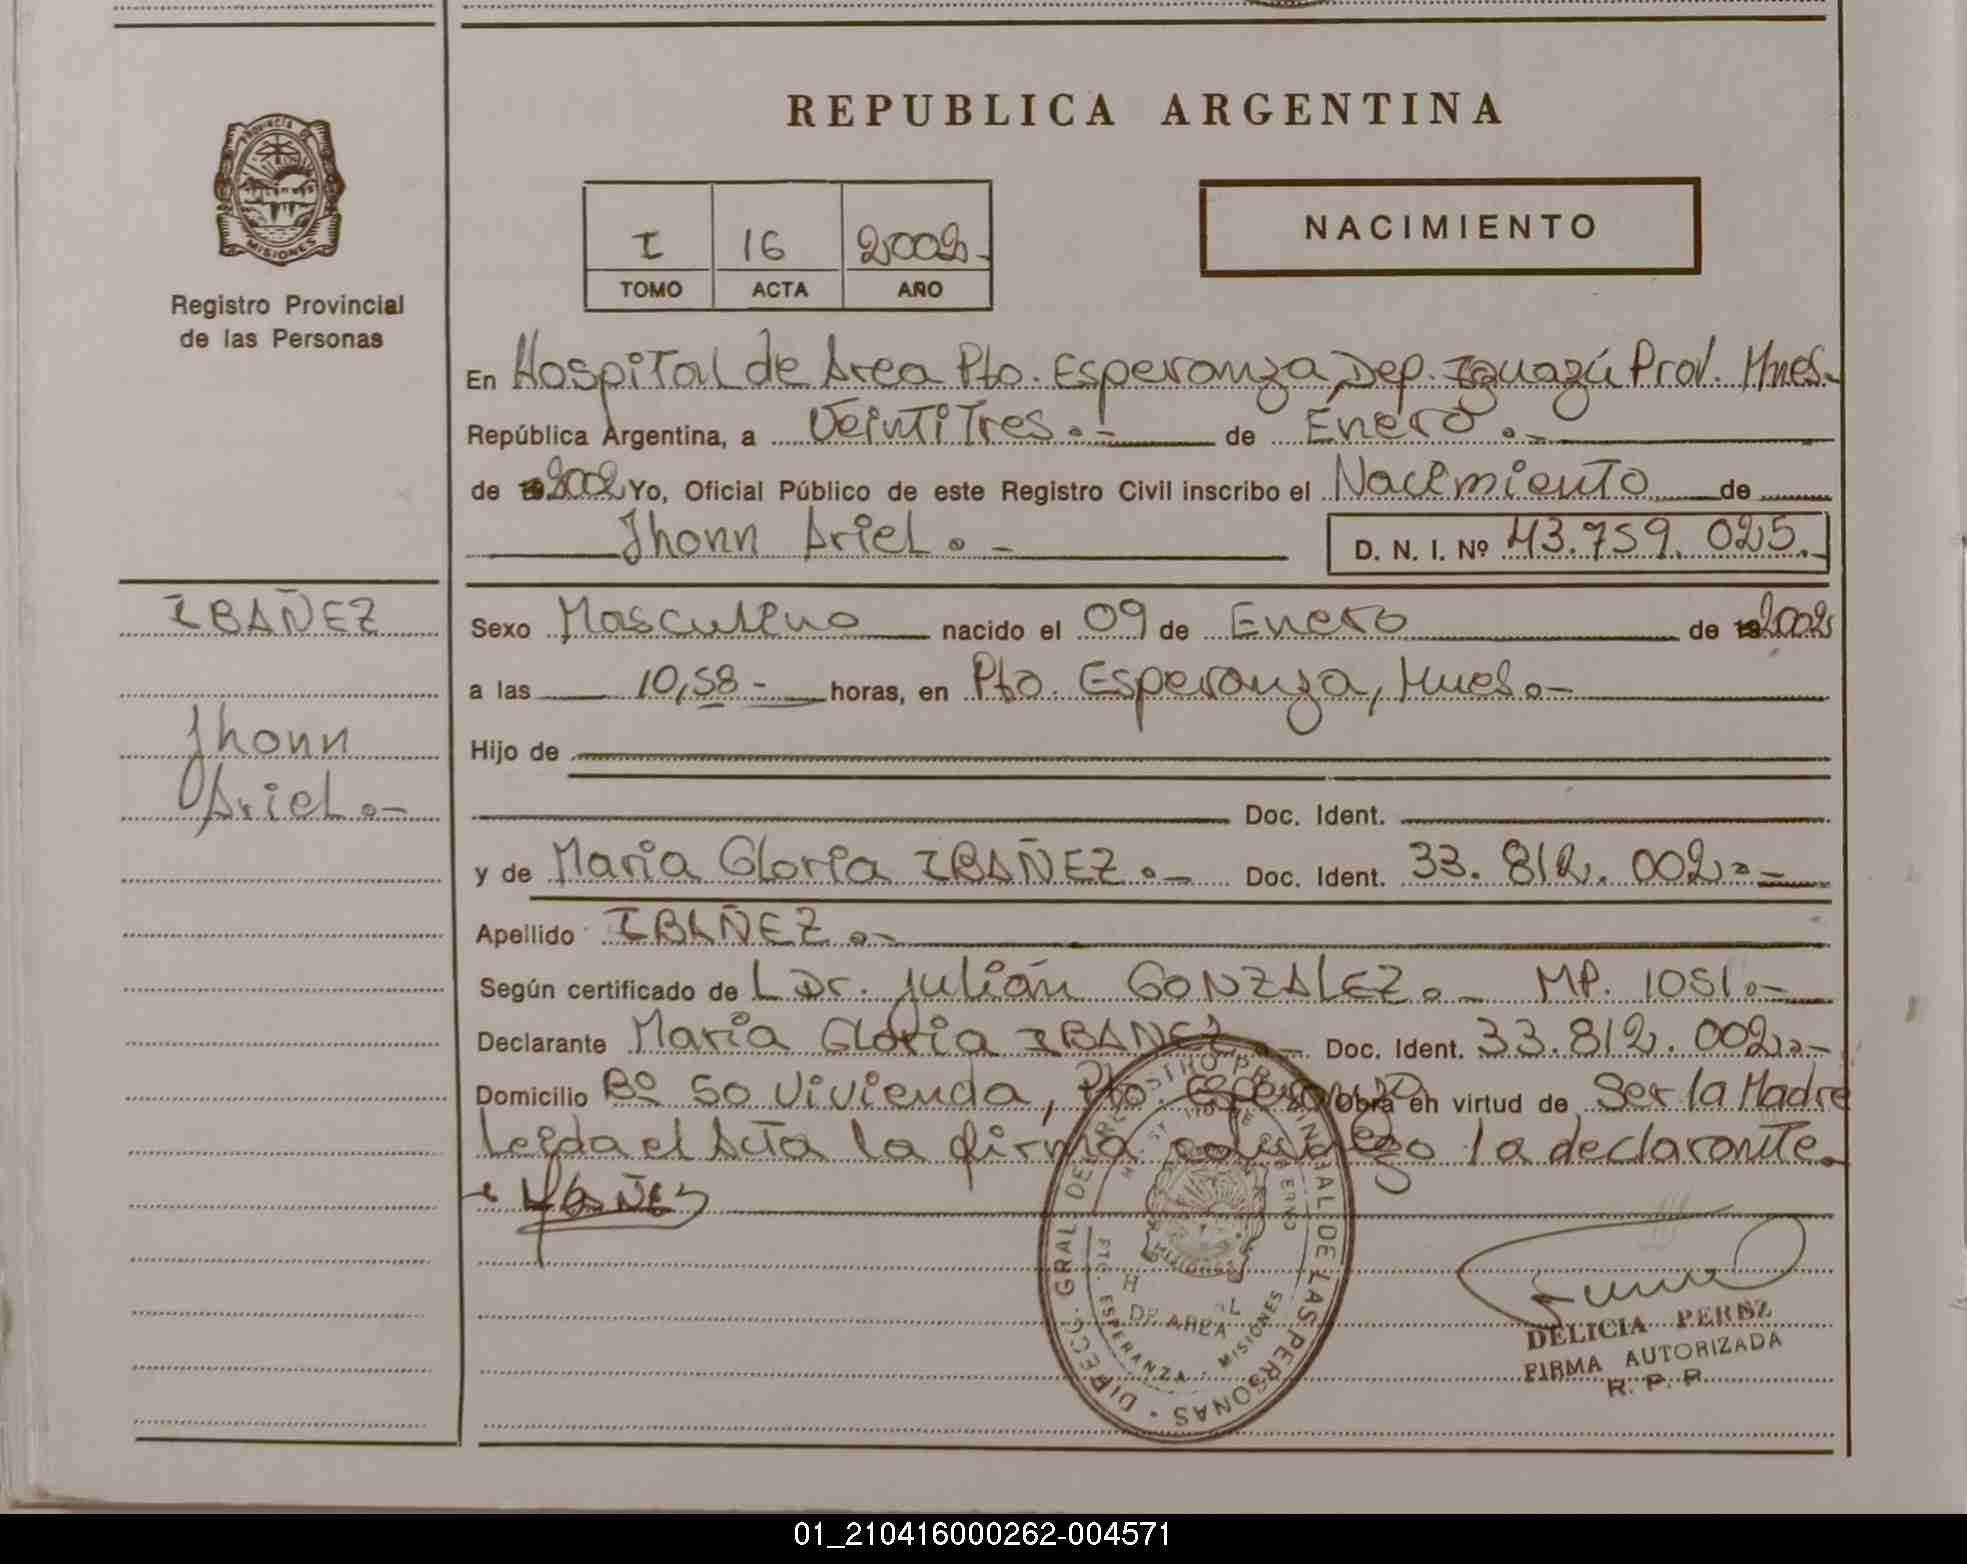 REPUBLICA ARGENTINA
PROVINCIA DE
MISIONES
Registro Provincial
de las Personas
I 16 2002.-
TOMO ACTA AÑO
NACIMIENTO
En Hospital de Area Pto. Esperanza, Dep. Iguazú Prov. Mnes.-
República Argentina, a Veintitres.- de Enero.-
de 2002 Yo, Oficial Público de este Registro Civil inscribo el Nacimiento de
Jhonn Ariel.- D. N. I. Nº 43.759.025.-
IBAÑEZ
Jhonn
Ariel.-
Sexo Masculino nacido el 09 de Enero de 2002
a las 10,58- horas, en Pto. Esperanza, Mnes.-
Hijo de
Doc. Ident.
y de Maria Gloria IBAÑEZ.- Doc. Ident. 33.812.002.-
Apellido IBAÑEZ.-
Según certificado de L Dr. Julián GONZALEZ.- MP. 1051.-
Declarante Maria Gloria IBAÑEZ.- Doc. Ident. 33.812.002.-
Domicilio Bº 50 Vivienda, Pto Esperanza Obra en virtud de Ser la Madre
Leida el Acta la firma conmigo la declarante.
IBAÑEZ
DIRECC. GRAL DEL REGISTRO PROVINCIAL DE LAS PERSONAS
PTO. ESPERANZA - MISIONES
DE AREA
MISIONES
DELICIA PEREZ
FIRMA AUTORIZADA
R. P. P.
01_210416000262-004571